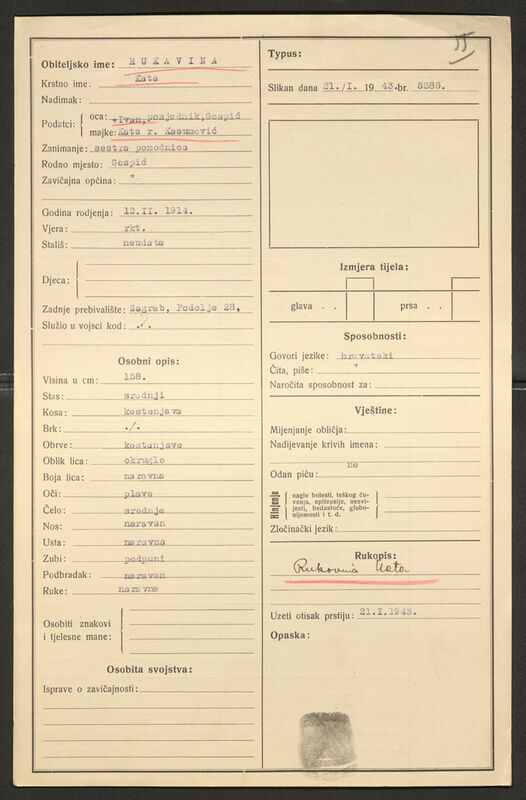 Obiteljsko ime: RUKAVINA
Krstno ime: Kata
Nadimak:
Podatci: { oca: +Ivan, posjednik, Gospić
majke: Kata r. Kasumović
Zanimanje: sestra pomoćnica
Rodno mjesto: Gospić
Zavičajna općina: ".
Godina rodjenja: 12.II. 1914.
Vjera: rkt.
Stališ: neudata
Djeca: {
Zadnje prebivalište: Zagreb, Podolje 28,
Služio u vojsci kod: ./.
Osobni opis:
Visina u cm: 158.
Stas: srednji
Kosa: kestenjava
Brk: ./.
Obrve: kestenjave
Oblik lica: okruglo
Boja lica: naravna
Oči: plave
Čelo: srednje
Nos: naravan
Usta: naravna
Zubi: podpuni
Podbradak: naravan
Ruke: naravne
Osobiti znakovi
i tjelesne mane:
Osobita svojstva:
Isprave o zavičajnosti:
Typus:
Slikan dana 21./I. 1943.br. 5285.
Izmjera tijela:
glava . . prsa . .
Sposobnosti:
Govori jezike: hrvatski
Čita, piše: "
Naročita sposobnost za:
Vještine:
Mijenjanje obličja:
Nadijevanje krivih imena:
Odan piću: ne
Hinjenje { nagle bolesti, teškog ću-
venja, epilepsije, nesvi-
jesti, bedastoće, gluho-
nijemosti i t. d.
Zločinački jezik:
Rukopis:
Rukavina Kata
Uzeti otisak prstiju: 21.I.1943.
Opaska: